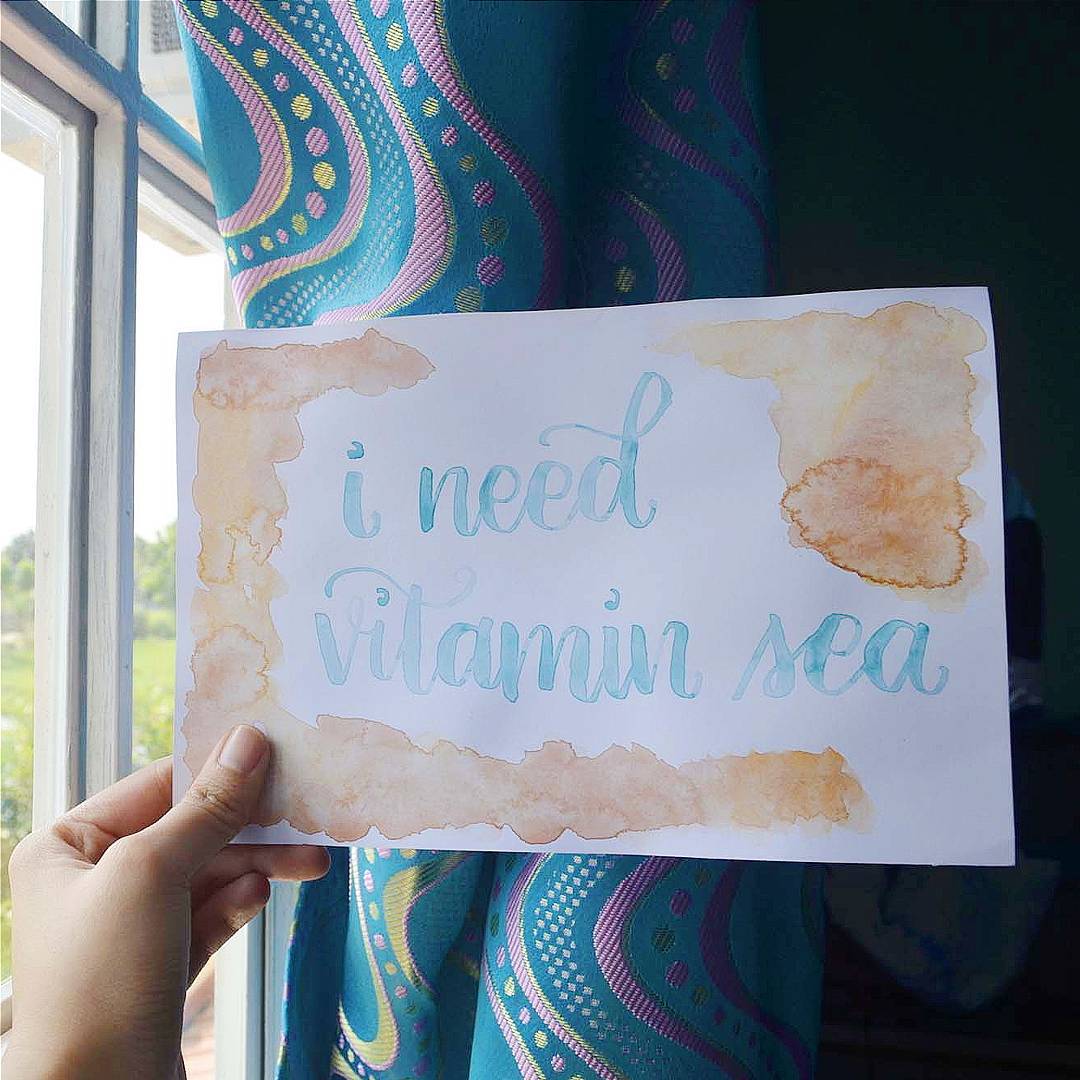 i need
vitamin sea